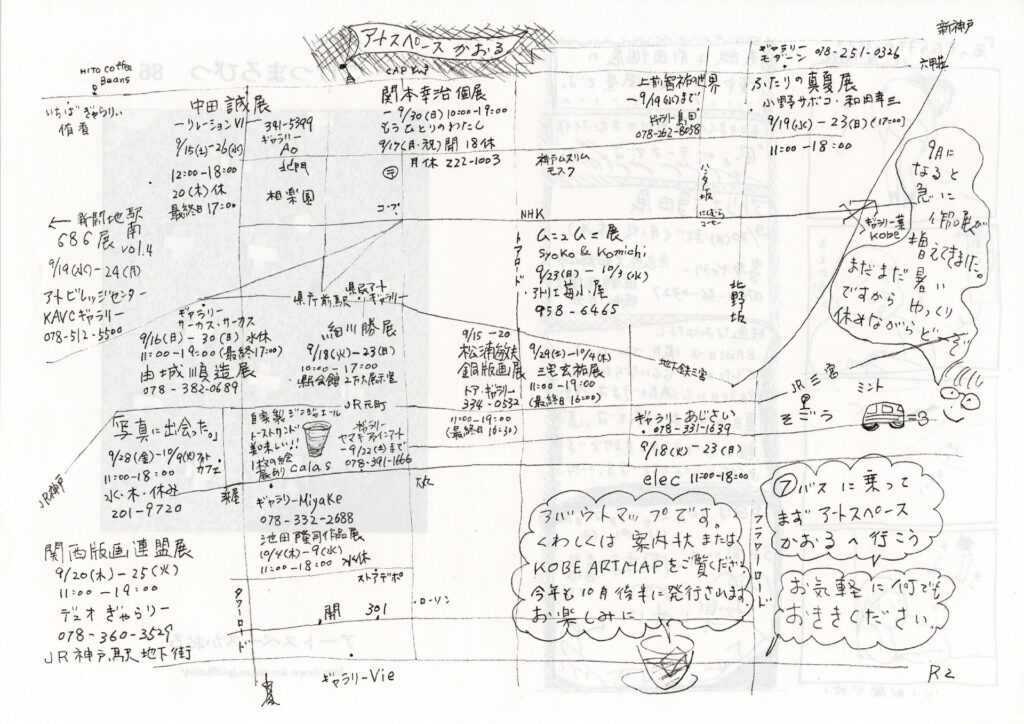 アートスペースかおる
HITO Coffee Beans
いちばぎゃらりぃ
侑香
中田誠展
ーリレーションVI
9/15(土)-26(水)
12:00-18:00
20(木)休
最終日17:00
341-5399
ギャラリー
AO
北門
相楽園
CAP
関本幸治個展
-9/30(日)10:00-19:00
もうひとりのわたし
9/17(月・祝)開 18休
月休 222-1003
〒
コープ
上前智祐の世界
-9/19(水)まで
ギャラリー島田
078-262-8058
神戸ムスリム
モスク
ハンター坂
にしむら
コーヒー
ギャラリー
モダーン
078-251-0326
ふたりの真夏展
小野サボコ・和田幸三
9/19(水)-23(日)(17:00)
11:00-18:00
新神戸
六甲荘
9月に
なると
急に
作品展が
増えてきました。
まだまだ暑い
ですから
ゆっくり
休めながらどーぞ
ギャラリー葉
Kobe
← 新開地駅
南
686展 vol.4
9/19(水)-24(月)
アートビレッジセンター
KAVCギャラリー
078-512-5500
NHK
トアロード
ムニュムニュ展
Syoko & Komichi
9/23(日)-10/3(水)
アトリエ苺小屋
958-6465
北野坂
県庁前駅
県民アート
ギャラリー
ギャラリー
サーカス・サーカス
9/16(日)-30(日)水休
11:00-19:00(最終17:00)
由城順造展
078-382-0689
細川勝展
9/18(火)-23(日)
10:00-17:00
県民会館2F大展示室
9/15-20
松浦敏夫
銅版画展
トア・ギャラリー
334-0532
11:00-19:00
(最終日16:30)
9/29(土)-10/4(木)
三宅玄祐展
11:00-19:00
(最終日16:00)
地下鉄三宮
JR三宮
ミント
そごう
「写真に出会った。」
9/28(金)-10/9(火)アートカフェ
11:00-18:00
水・木・休み
201-9720
自家製ジンジャエール
トーストサンド
美味しい!!
1枚の絵
蔵あり
calas
JR元町
ギャラリー
ヤマキファインアート
-9/22(土)まで
078-391-1666
ギャラリーあじさい
・078-331-1639
9/18(火)-23(日)
elec 11:00-18:00
JR神戸
大丸
ギャラリーMiyake
078-332-2688
池田隆司作品展
10/4(木)-9(火)
11:00-18:00 水休
ストアデポ
関西版画連盟展
9/20(木)-25(火)
11:00-19:00
デュオぎゃらりー
078-360-3529
JR神戸駅地下街
タワーロード
開 301
・ローソン
ギャラリーVie
アバウトマップです。
くわしくは案内状または
KOBE ART MAPをご覧ください
今年も10月後半に発行されます。
お楽しみに
フラワーロード
⑦バスに乗って
まずアートスペース
かおるへ行こう
お気軽に何でも
おききください。
R2